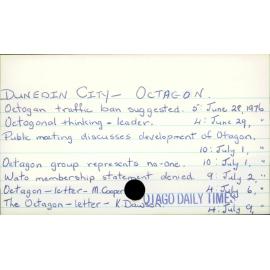 DUNEDIN CITY — OCTAGON.
Octogan traffic ban suggested. 5: June 28, 1976
Octogonal thinking — leader. 4: June 29, "
Public meeting discusses development of Otagon.
10: July 1, "
Octagon group represents no-one. 10: July 1, "
Wato membership statement denied. 9: July 2 "
Octagon — letter — M. Cooper 4: July 6, "
OTAGO DAILY TIMES
The Octagon — letter — K. Dawson 4: July 9, "